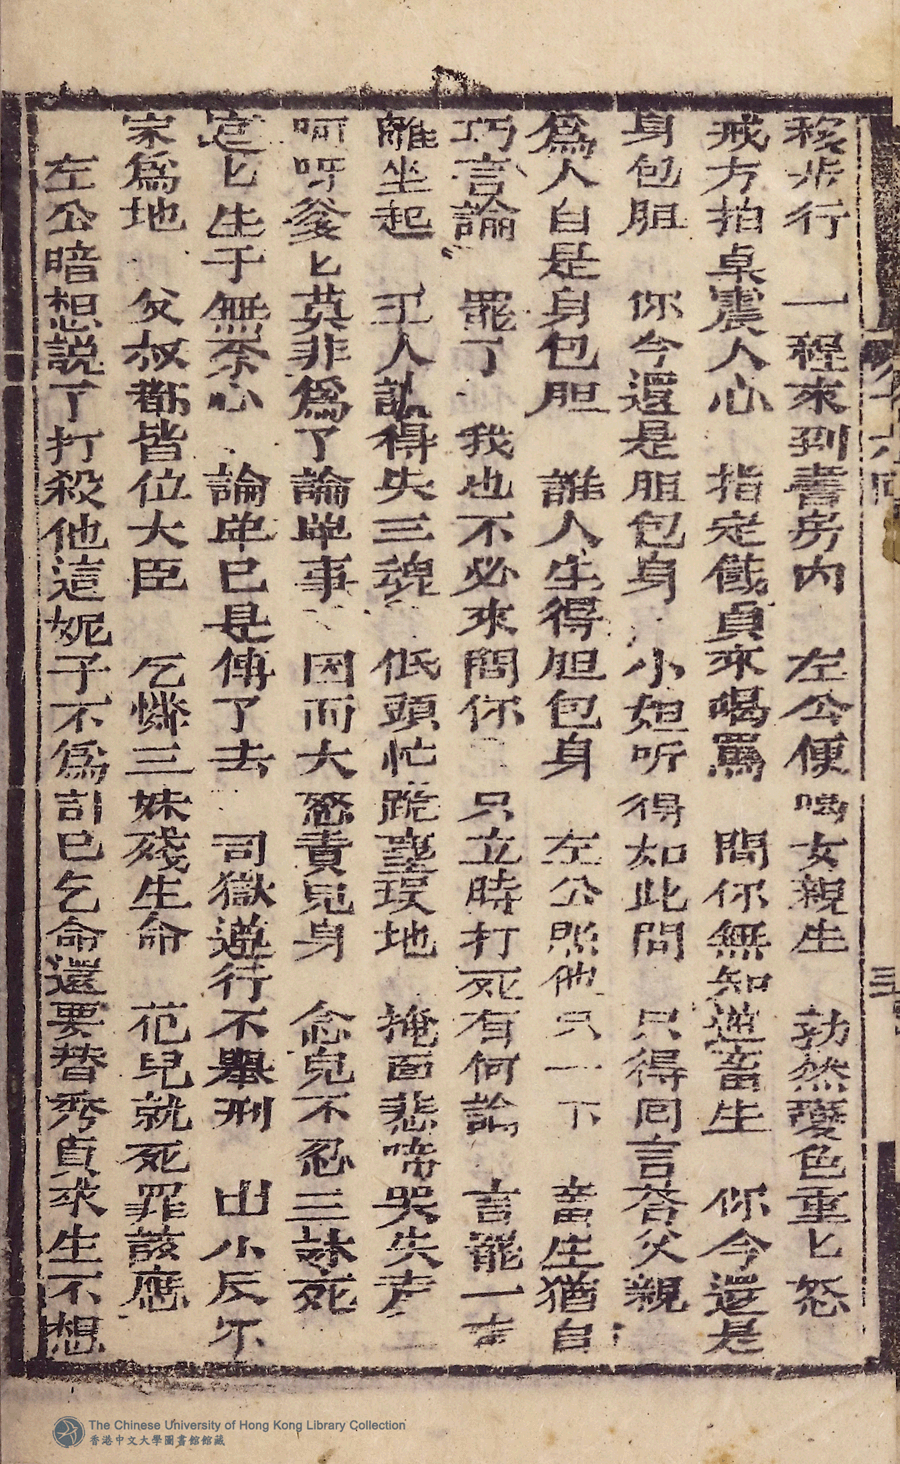 移步行　一程來到書房內　左公便喝女親生　勃然變色重匕怒
戒方拍桌震人心　指定儀貞來喝罵　問你無知逆畜生　你今還是
身包胆　你今還是胆包身　小妲听得如此問　只得囘言荅父親
爲人自是身包胆　誰人生得胆包身　左公照他只一下　畜生猶自
巧言論　罷了　我也不必來問你　只立時打死有何論　言罷一声
離坐起　王人訕得失三魂　低頭忙跪塵埃地　掩面悲啼哭失声
呵呀爹匕莫非爲了論单事　因而大怒責兒身　念兒不忍三妹死
這匕生于無奈心　論单已是傳了去　司獄遵行不舉刑　出小反尔
家爲地　父叔都皆位大臣　乞憐三妹殘生命　范兒就死罪該應
左公暗想說了打殺他這妮子不爲討巳乞命還要替秀貞求生不想
The Chinese University of Hong Kong Library Collection
香港中文大學圖書館館藏